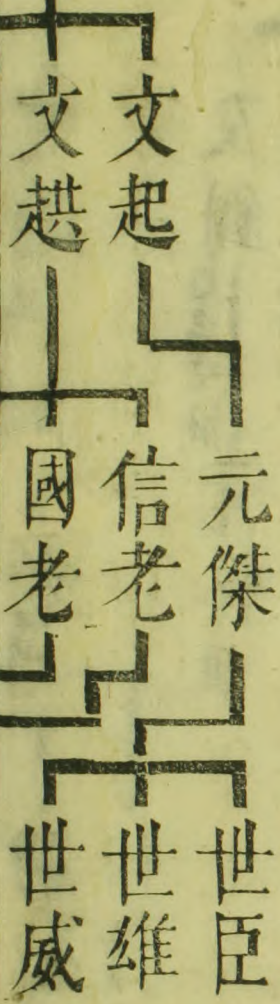 文起
文趪
元傑
信老
國老
世臣
世雄
世威